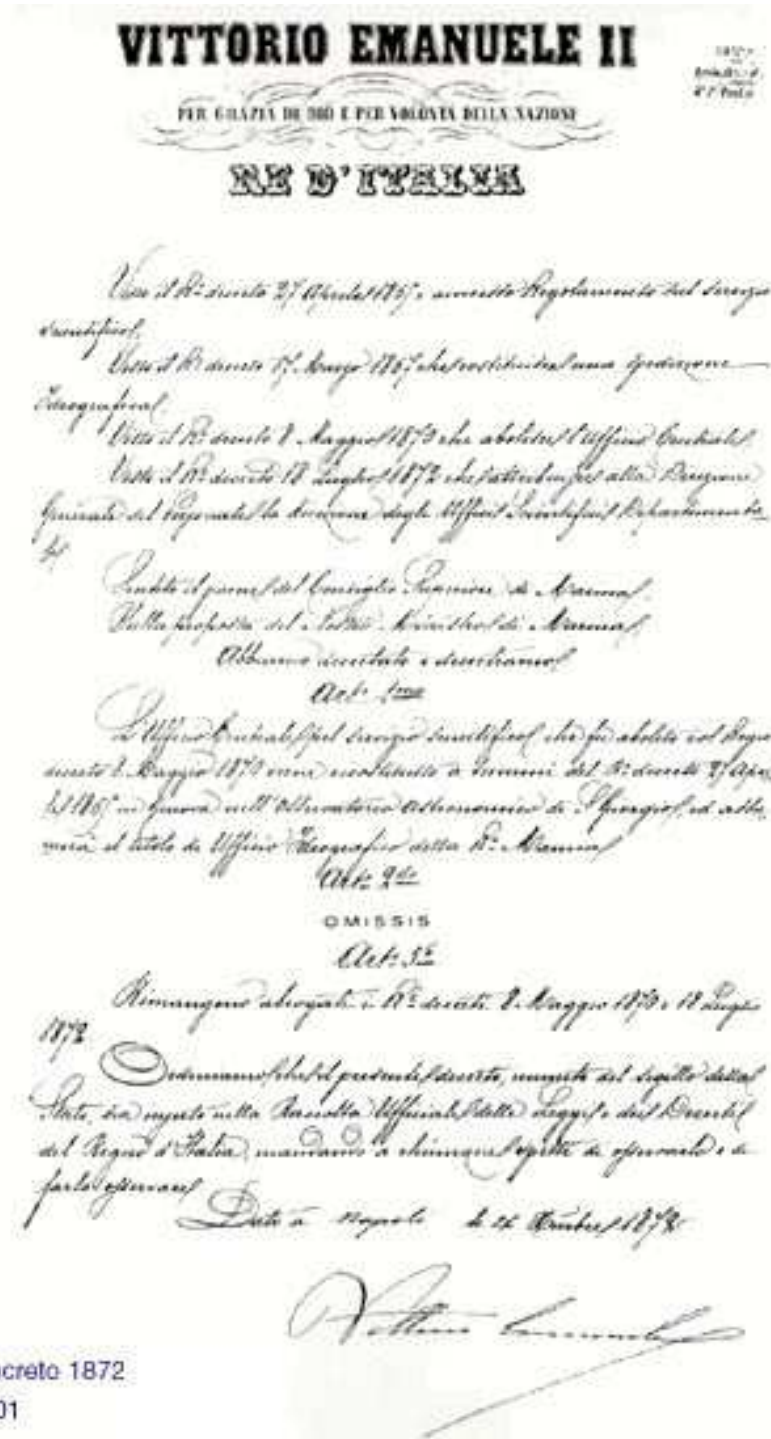 VITTORIO EMANUELE II
PER GRAZIA DI DIO E PER VOLONTÀ DELLA NAZIONE
RE D'ITALIA
Visto il R.º decreto 27 Aprile 1865 e annesso Regolamento sul servizio
scientifico.
Visto il R.º decreto 17 Marzo 1867 che costituisce una spedizione
Idrografica
Visto il R.º decreto 8 Maggio 1870 che abolisce l'Ufficio Centrale
Visto il R.º decreto 18 Luglio 1872 che attribuisce alla Direzione
Generale del Personale la direzione degli Ufficii Scientifici Dipartimenta-
li
Sentito il parere del Consiglio Superiore di Marina
Sulla proposta del Nostro Ministro di Marina
Abbiamo decretato e decretiamo
Art.º 1mo
L'Ufficio Centrale pel servizio scientifico che fu abolito col Regio
decreto 8 Maggio 1870 viene ricostituito a termini del R.º decreto 27 Apri-
le 1865 in Genova nell'Osservatorio astronomico di S. Giorgio, ed assu-
merà il titolo di Ufficio Idrografico della R.ª Marina
Art.º 2do
OMISSIS
Art.º 3º
Rimangono abrogati i R.i decreti 8 Maggio 1870 e 18 Luglio
1872
Ordiniamo che il presente decreto, munito del sigillo dello
Stato, sia inserto nella Raccolta Ufficiale delle Leggi e dei Decreti
del Regno d'Italia, mandando a chiunque spetti di osservarlo e di
farlo osservare
Dato a Napoli 1872
Vittorio Emanuele
creto 1872
01